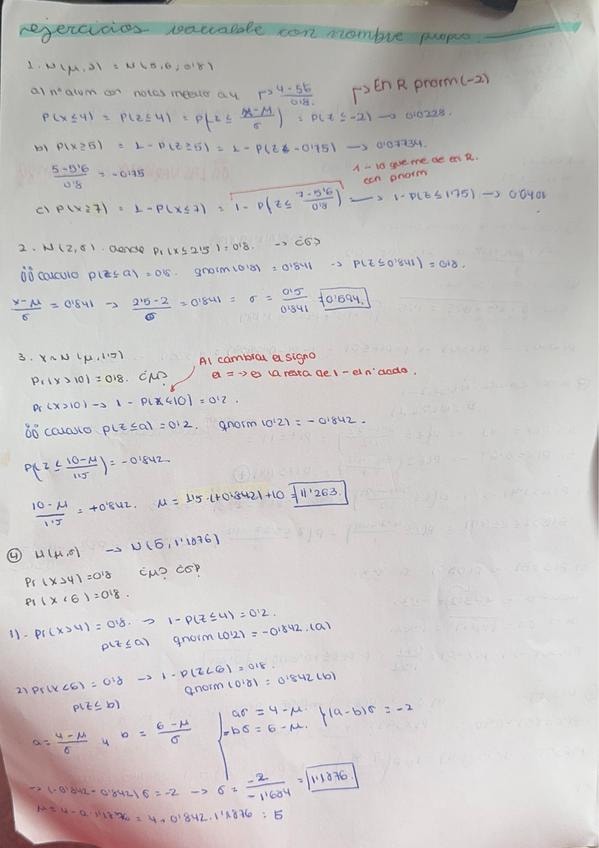 ejercicios variable con nombre propio
1. N(μ, σ) = N(5,6, 0'8)
a) nº alum con notas menor a 4 → 4-5'6 / 0'8. → En R pnorm(-2)
P(x≤4) = P(z≤4) = P(z ≤ x-μ / σ) = P(z ≤ -2) → 0'0228.
b) P(x≥5) = 1 - P(z≥5) = 1 - P(z≤ -0'75) → 0'07734.
5-5'6 / 0'8 = -0'75
1 - lo que me de en R. con pnorm
c) P(x≥7) = 1 - P(x≤7) = 1 - P(z ≤ 7-5'6 / 0'8) → 1 - P(z ≤ 1'75) → 0'0401
2. N(2, σ) donde Pr(x≤2'5) = 0'8. → ¿σ?
calculo P(z≤a) = 0'8. qnorm(0'8) = 0'841 → P(z≤0'841) = 0'8.
x-μ / σ = 0'841 → 2'5-2 / σ = 0'841 = σ = 0'5 / 0'841 = 0'594.
3. x~N(μ, 1'5)
Pr(x>10) = 0'8. ¿μ?
Al cambiar el signo
el = → es la resta de 1 - el nº dado.
Pr(x>10) → 1 - P(x≤10) = 0'2.
calculo P(z≤a) = 0'2. qnorm(0'2) = -0'842.
P(z ≤ 10-μ / 1'5) = -0'842.
10-μ / 1'5 = +0'842. μ = 1'5·(+0'842) + 10 = 11'263.
④ N(μ, σ) → N(5, 1'1876)
Pr(x>4) = 0'8 ¿μ? ¿σ?
Pr(x<6) = 0'8.
1) - Pr(x>4) = 0'8. → 1 - P(z≤4) = 0'2.
P(z≤a) qnorm(0'2) = -0'842. (a)
2) Pr(x<6) = 0'8 → 1 - P(z<6) = 0'8.
P(z≤b) qnorm(0'8) = 0'842 (b)
a = 4-μ / σ y b = 6-μ / σ { aσ = 4-μ. bσ = 6-μ. } (a-b)σ = -2
→ (-0'842 - 0'842)σ = -2 → σ = -2 / -1'684 = 1'1876
μ = 4-a·1'1876 = 4 + 0'842·1'1876 : 5